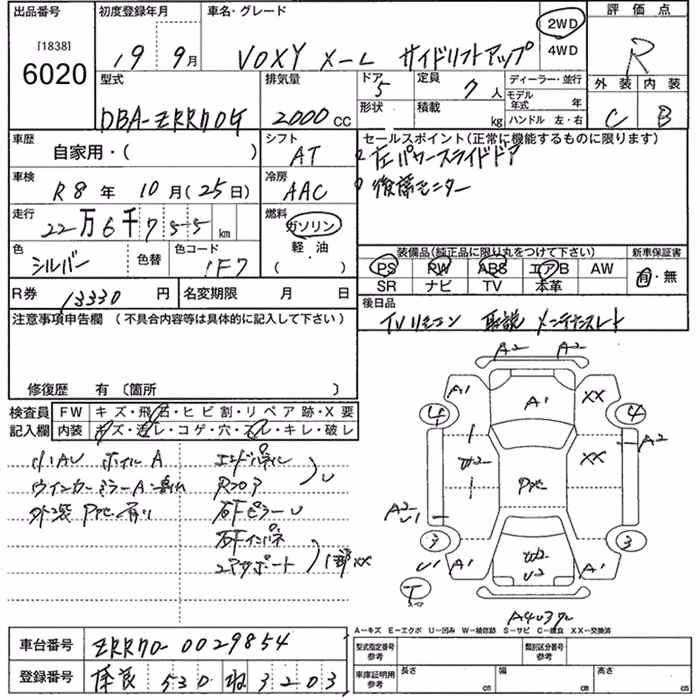 出品番号 初度登録年月 車名・グレード 評価点
[1838]
6020
19 9月 VOXY X-L サイドリフトアップ
2WD
4WD
R
外装 内装
C B
型式 排気量 ドア 定員 ディーラー・並行
5 7 人 モデル年式 年
形状 積載 kg ハンドル 左・右
DBA-ZRR70G 2000 CC
車歴 シフト セールスポイント(正常に機能するものに限ります)
自家用・( ) AT 左パワースライドドア
車検 冷房 後席モニター
R8年 10月(25日) AAC
走行 燃料
22万6千755km ガソリン
軽・油
( )
色 色替 色コード
シルバー 1F7
装備品(純正品に限り丸をつけて下さい) 新車保証書
PS PW ABS エアB AW 有・無
SR ナビ TV 本革
R券 13330円 名変期限 月 日
後日品
TVリモコン 取説 メンテナンスノート
注意事項申告欄 (不具合内容等は具体的に記入して下さい)
修復歴 有〔箇所 〕
検査員 FW キズ・飛石・ヒビ割・リペア跡・X要
記入欄 内装 キズ・汚レ・コゲ・穴・スレ・キレ・破レ
小AU ホイルA エンドパネル
ウインカーミラーA Rフロア U
外装
サポート 1部XX
A2 A2
A1 A1 XX
4 4
A2
W2 XX
A2
U1
3 3
U1 A1 W2 A1
U2
T
スペア
A=キズ E=エクボ U=凹み W=補修跡 S=サビ C=腐食 XX=交換済
車台番号 ZRR70-0029854
登録番号 530 3203
型式指定番号 参考 類別区分番号 参考
車庫証明用 参考 長さ cm 幅 cm 高さ cm